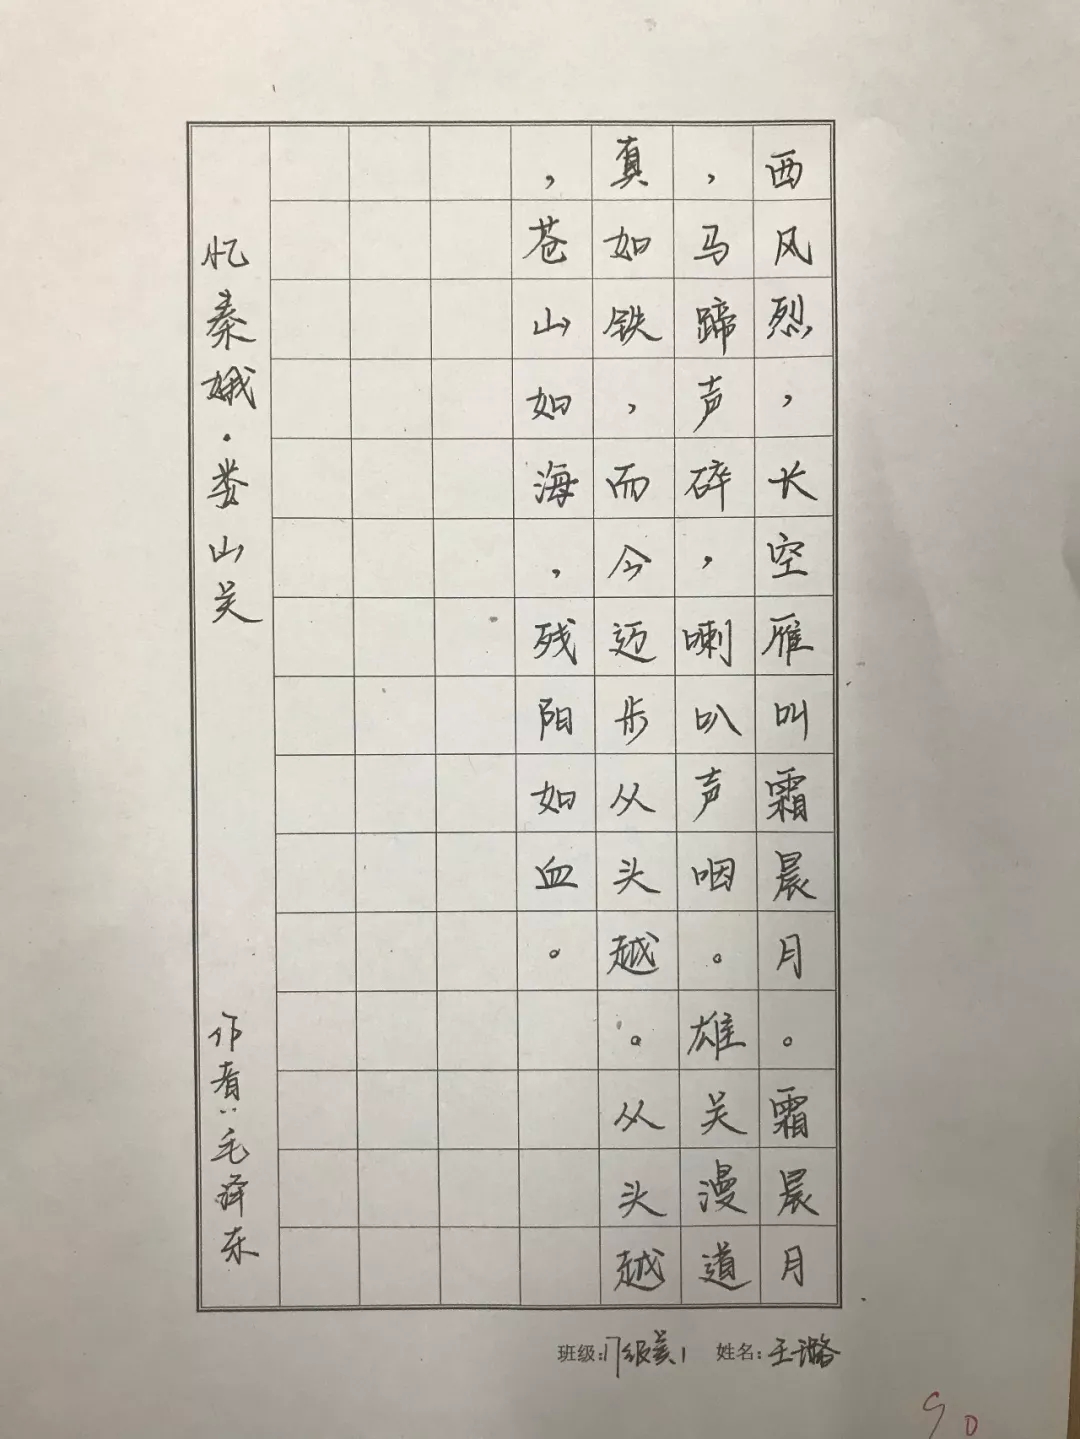 西风烈，长空雁叫霜晨月。霜晨月
，马蹄声碎，喇叭声咽。雄关漫道
真如铁，而今迈步从头越。从头越
，苍山如海，残阳如血。
忆秦娥·娄山关
作者：毛泽东
班级: 级美1 姓名: 王璐
90